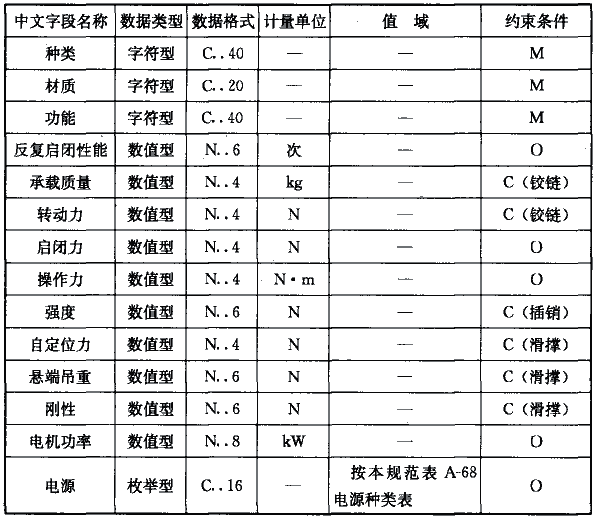 中文字段名称 数据类型 数据格式 计量单位 值 域 约束条件
种类 字符型 C..40 — — M
材质 字符型 C..20 — — M
功能 字符型 C..40 — — M
反复启闭性能 数值型 N..6 次 — O
承载质量 数值型 N..4 kg — C(铰链)
转动力 数值型 N..4 N — C(铰链)
启闭力 数值型 N..4 N — O
操作力 数值型 N..4 N·m — O
强度 数值型 N..6 N — C(插销)
自定位力 数值型 N..4 N — C(滑撑)
悬端吊重 数值型 N..6 N — C(滑撑)
刚性 数值型 N..6 N — C(滑撑)
电机功率 数值型 N..8 kW — O
电源 枚举型 C..16 — 按本规范表 A-68 O
电源种类表